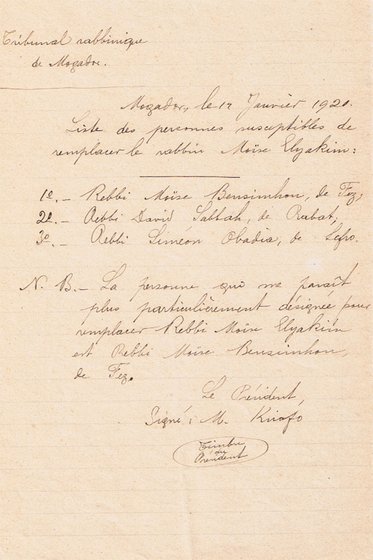 Tribunal rabbinique
de Mogador.
Mogador, le 12 Janvier 1921.
Liste des personnes susceptibles de
remplacer le rabbin Moïse Elyakim:
1º.- Rebbi Moïse Bensimhon, de Fez,
2º.- Rebbi David Sabbah, de Rabat,
3º.- Rebbi Siméon Obadia, de Sefro.
N. B.- La personne qui me paraît
plus particulièrement désignée pour
remplacer Rebbi Moïse Elyakim
est Rebbi Moïse Bensimhon,
de Fez.
Le Président,
Signé: M. Knafo
Timbre
du
Président